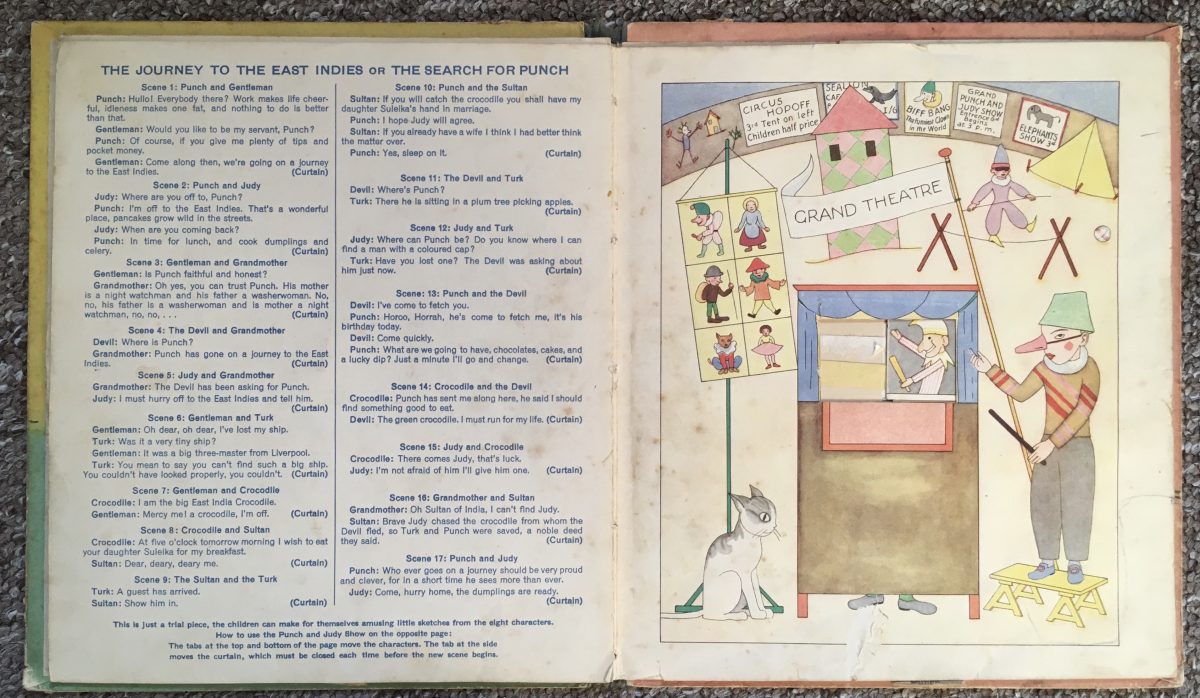 THE JOURNEY TO THE EAST INDIES OR THE SEARCH FOR PUNCH
Scene 1: Punch and Gentleman
Punch: Hullo! Everybody there? Work makes life cheer-
ful, idleness makes one fat, and nothing to do is better
than that.
Gentleman: Would you like to be my servant, Punch?
Punch: Of course, if you give me plenty of tips and
pocket money.
Gentleman: Come along then, we're going on a journey
to the East Indies. (Curtain)
Scene 2: Punch and Judy
Judy: Where are you off to, Punch?
Punch: I'm off to the East Indies. That's a wonderful
place, pancakes grow wild in the streets.
Judy: When are you coming back?
Punch: In time for lunch, and cook dumplings and
celery. (Curtain)
Scene 3: Gentleman and Grandmother
Gentleman: Is Punch faithful and honest?
Grandmother: Oh yes, you can trust Punch. His mother
is a night watchman and his father a washerwoman. No,
no, his father is a washerwoman and is mother a night
watchman, no, no, . . . (Curtain)
Scene 4: The Devil and Grandmother
Devil: Where is Punch?
Grandmother: Punch has gone on a journey to the East
Indies. (Curtain)
Scene 5: Judy and Grandmother
Grandmother: The Devil has been asking for Punch.
Judy: I must hurry off to the East Indies and tell him.
(Curtain)
Scene 6: Gentleman and Turk
Gentleman: Oh dear, oh dear, I've lost my ship.
Turk: Was it a very tiny ship?
Gentleman: It was a big three-master from Liverpool.
Turk: You mean to say you can't find such a big ship.
You couldn't have looked properly, you couldn't. (Curtain)
Scene 7: Gentleman and Crocodile
Crocodile: I am the big East India Crocodile.
Gentleman: Mercy me! a crocodile, I'm off. (Curtain)
Scene 8: Crocodile and Sultan
Crocodile: At five o'clock tomorrow morning I wish to eat
your daughter Suleika for my breakfast.
Sultan: Dear, deary, deary me. (Curtain)
Scene 9: The Sultan and the Turk
Turk: A guest has arrived.
Sultan: Show him in. (Curtain)
Scene 10: Punch and the Sultan
Sultan: If you will catch the crocodile you shall have my
daughter Suleika's hand in marriage.
Punch: I hope Judy will agree.
Sultan: If you already have a wife I think I had better think
the matter over.
Punch: Yes, sleep on it. (Curtain)
Scene 11: The Devil and Turk
Devil: Where's Punch?
Turk: There he is sitting in a plum tree picking apples.
(Curtain)
Scene 12: Judy and Turk
Judy: Where can Punch be? Do you know where I can
find a man with a coloured cap?
Turk: Have you lost one? The Devil was asking about
him just now. (Curtain)
Scene: 13: Punch and the Devil
Devil: I've come to fetch you.
Punch: Horoo, Horrah, he's come to fetch me, it's his
birthday today.
Devil: Come quickly.
Punch: What are we going to have, chocolates, cakes, and
a lucky dip? Just a minute I'll go and change. (Curtain)
Scene 14: Crocodile and the Devil
Crocodile: Punch has sent me along here, he said I should
find something good to eat.
Devil: The green crocodile. I must run for my life. (Curtain)
Scene 15: Judy and Crocodile
Crocodile: There comes Judy, that's luck.
Judy: I'm not afraid of him I'll give him one. (Curtain)
Scene 16: Grandmother and Sultan
Grandmother: Oh Sultan of India, I can't find Judy.
Sultan: Brave Judy chased the crocodile from whom the
Devil fled, so Turk and Punch were saved, a noble deed
they said. (Curtain)
Scene 17: Punch and Judy
Punch: Who ever goes on a journey should be very proud
and clever, for in a short time he sees more than ever.
Judy: Come, hurry home, the dumplings are ready.
(Curtain)
This is just a trial piece, the children can make for themselves amusing little sketches from the eight characters.
How to use the Punch and Judy Show on the opposite page:
The tabs at the top and bottom of the page move the characters. The tab at the side
moves the curtain, which must be closed each time before the new scene begins.
CIRCUS
HOPOFF
3rd Tent on left
Children half price
SEA LION
1/6
BIFF BANG
The Funniest Clown
in the World
GRAND
PUNCH AND
JUDY SHOW
Entrence 6d
Begins
at 3 p.m.
ELEPHANTS
SHOW 3d
GRAND THEATRE